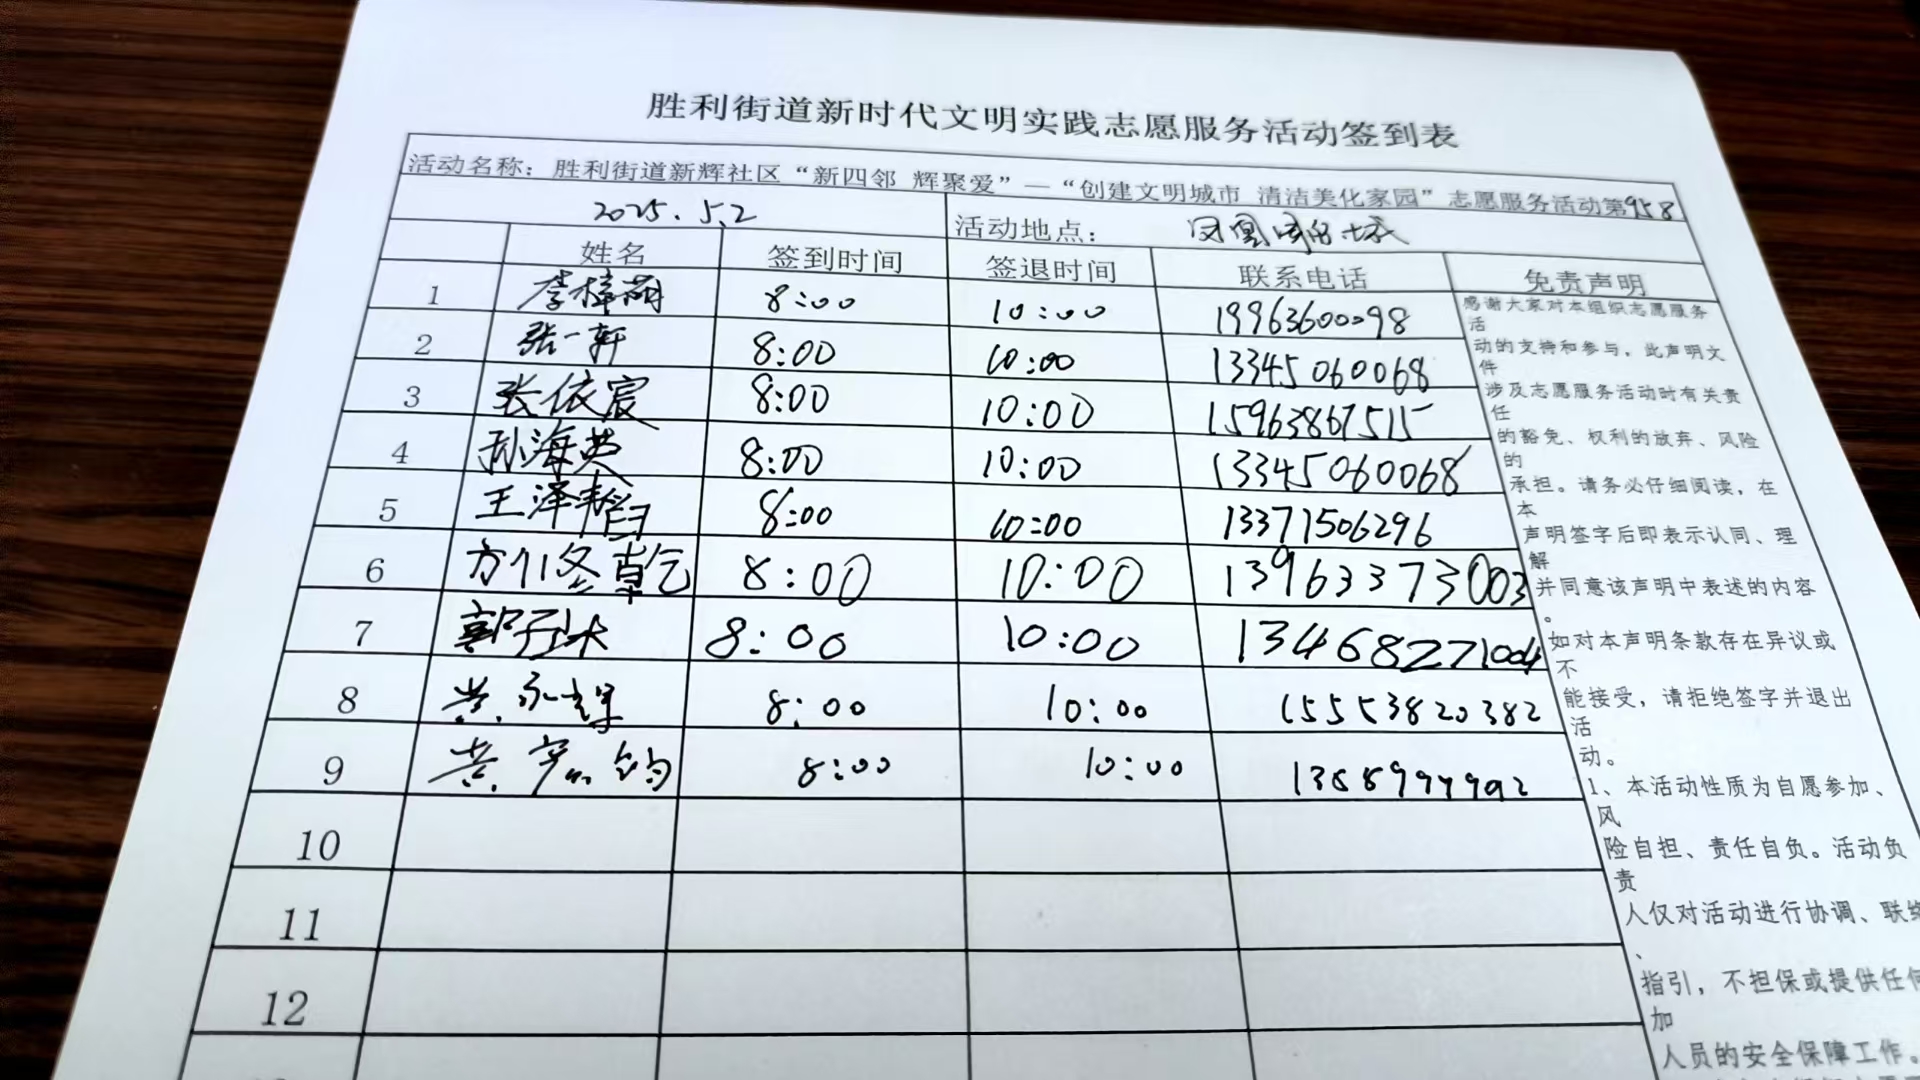 胜利街道新时代文明实践志愿服务活动签到表
活动名称：胜利街道新辉社区“新四邻 辉聚爱”—“创建文明城市 清洁美化家园”志愿服务活动第958
2025.5.2 活动地点： 凤凰城
姓名 签到时间 签退时间 联系电话 免责声明
1 李梓萌 8:00 10:00 19963600098
2 张一轩 8:00 10:00 13345060068
3 张依宸 8:00 10:00 15963867515
4 孙海英 8:00 10:00 13345060068
5 王泽韬 8:00 10:00 13371506296
6 8:00 10:00 13963373003
7 郭子 8:00 10:00 13468271004
8 黄永辉 8:00 10:00 15553820382
9 黄宏钧 8:00 10:00
10
11
12
感谢大家对本组织志愿服务
活
动的支持和参与，此声明文
件
涉及志愿服务活动时有关责
任
的豁免、权利的放弃、风险
的
承担。请务必仔细阅读，在
本
声明签字后即表示认同、理
解
并同意该声明中表述的内容
。
如对本声明条款存在异议或
不
能接受，请拒绝签字并退出
活
动。
1、本活动性质为自愿参加、
风
险自担、责任自负。活动负
责
人仅对活动进行协调、联络
、
指引，不担保或提供任何
加
人员的安全保障工作。